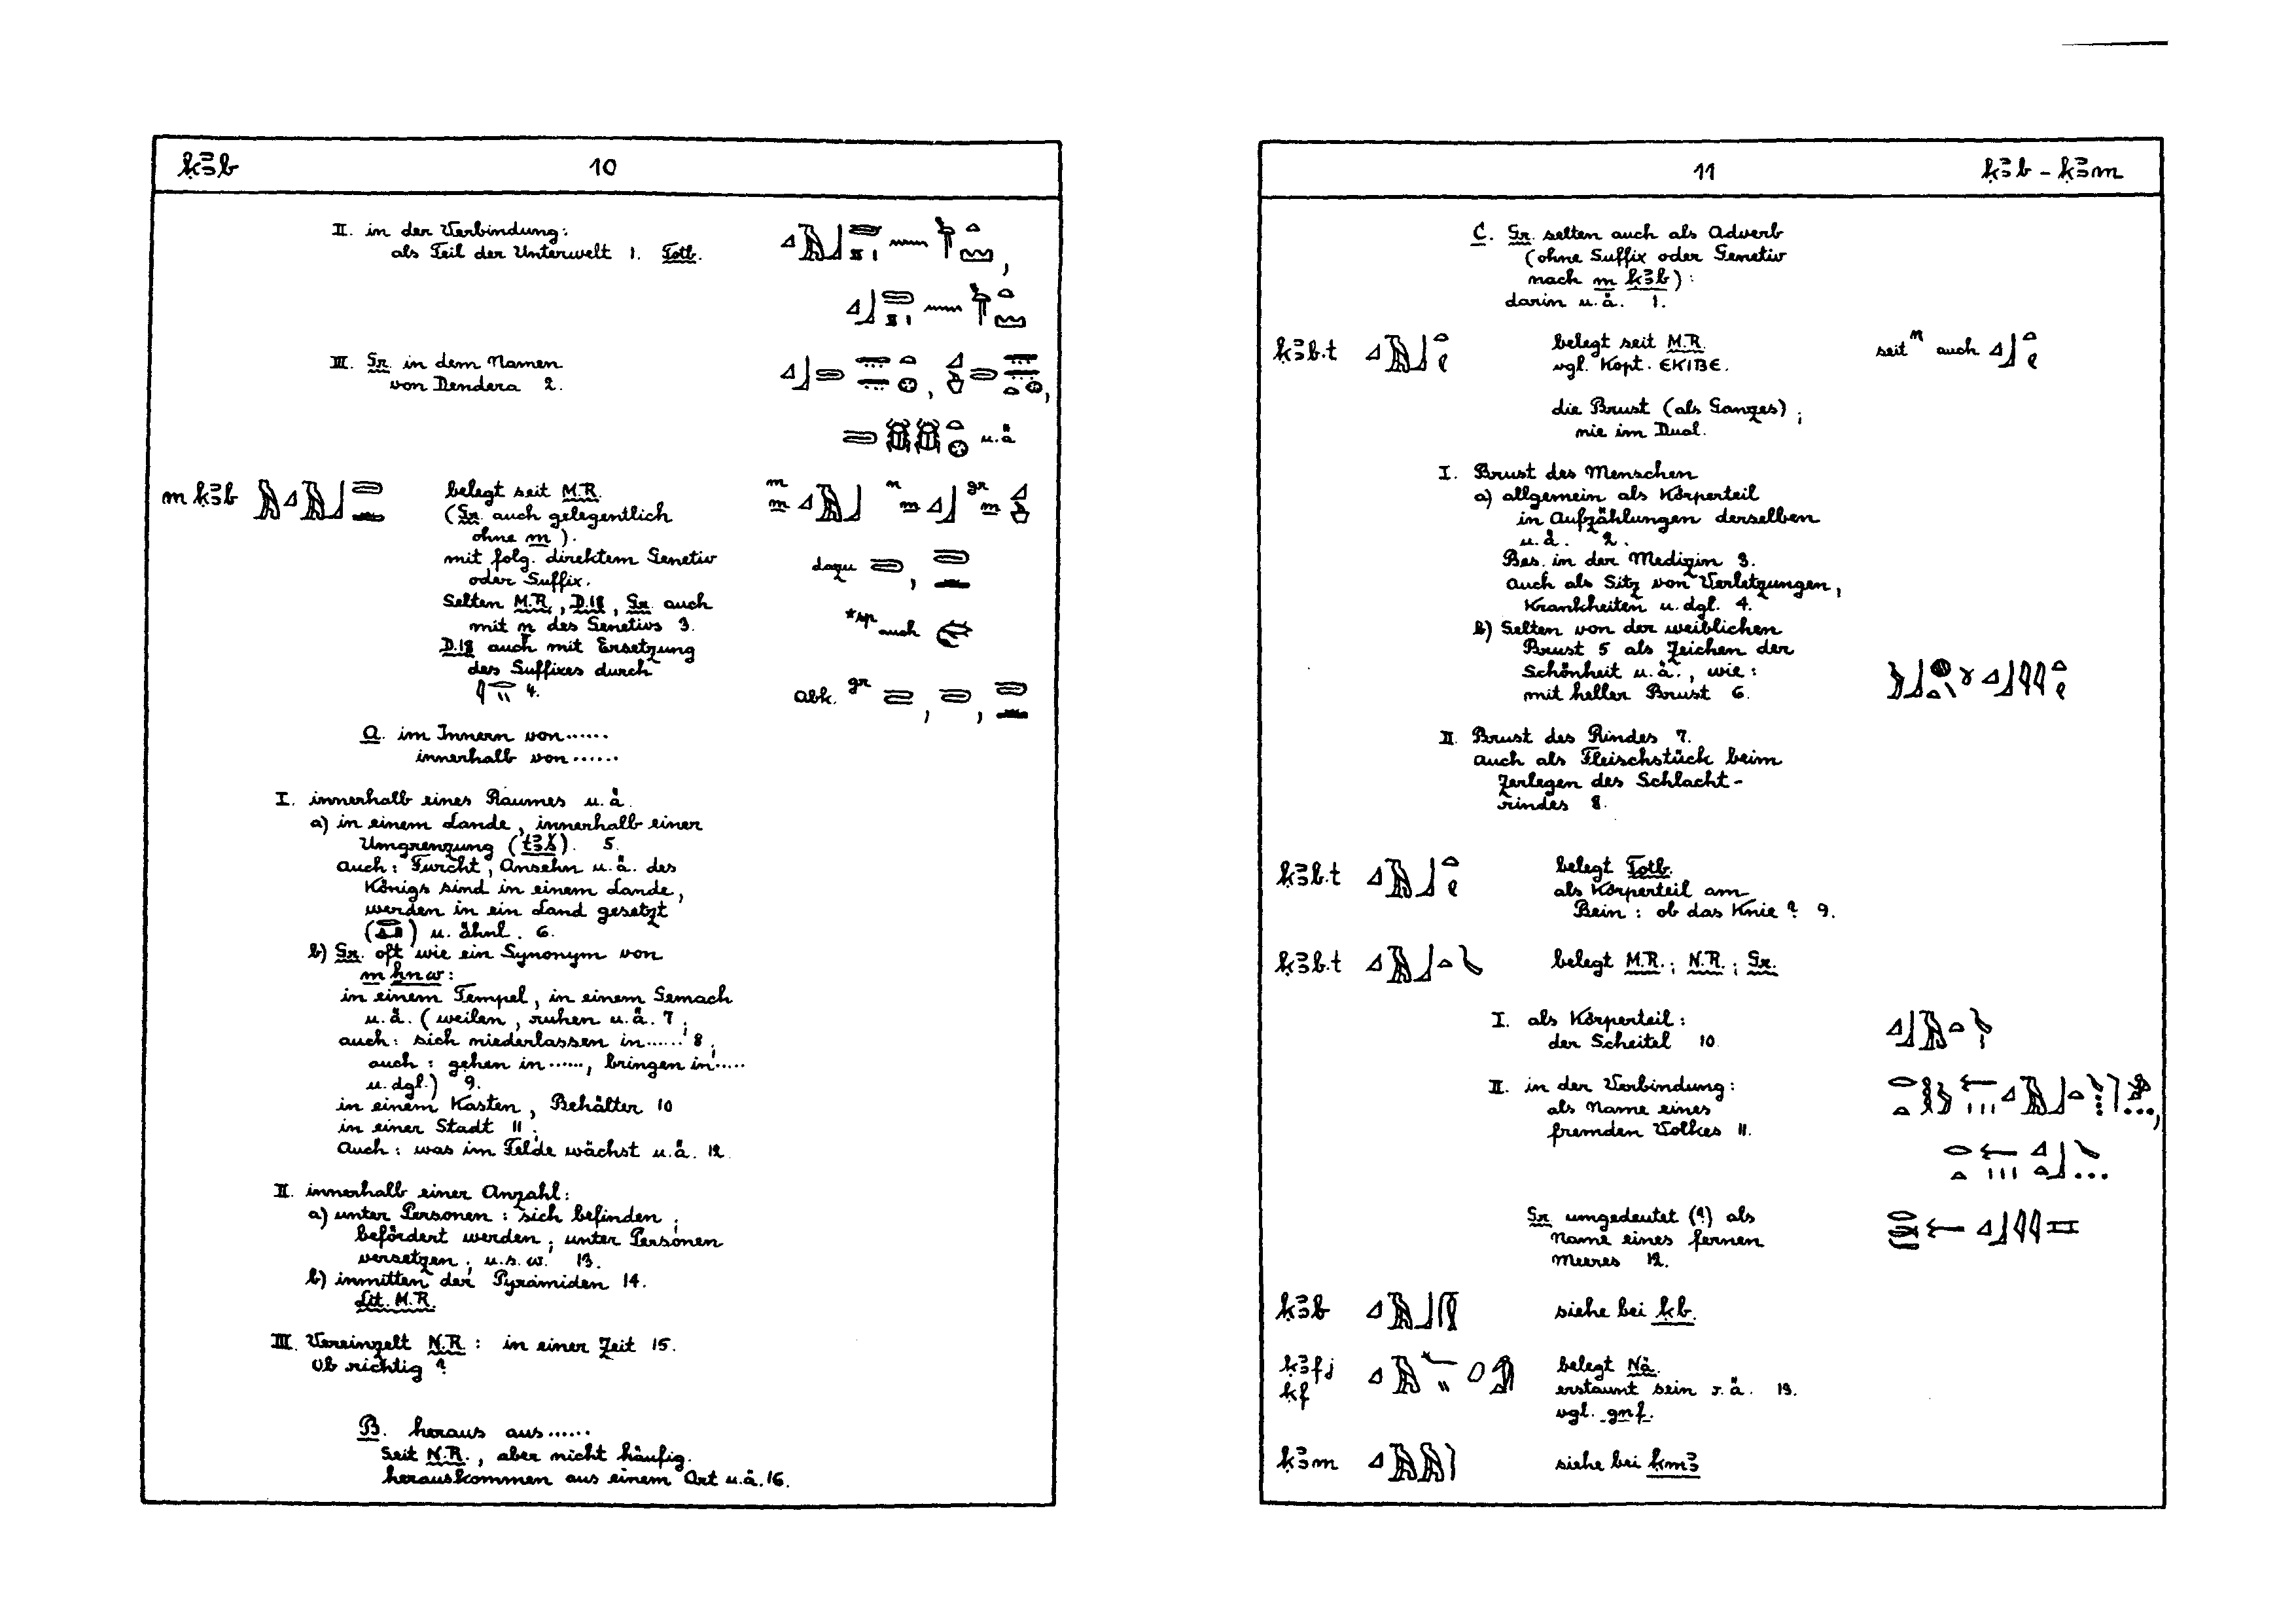 ḳꜣb 10
II. in der Verbindung:
als Teil der Unterwelt 1. Totb.
III. Gr. in dem Namen
von Dendera 2.
u.ä
m ḳꜣb
belegt seit M.R.
(Gr. auch gelegentlich
ohne m).
mit folg. direktem Genetiv
oder Suffix.
Selten M.R., D.18, Gr. auch
mit n des Genetivs 3.
D.18 auch mit Ersetzung
des Suffixes durch
4.
m m n m gr m
dazu
*sp auch
Abk. gr
A. im Innern von ......
innerhalb von ......
I. innerhalb eines Raumes u.ä.
a) in einem Lande, innerhalb einer
Umgrenzung (tꜣš). 5.
Auch: Furcht, Ansehn u.ä. des
Königs sind in einem Lande,
werden in ein Land gesetzt
u. ähnl. 6.
b) Gr. oft wie ein Synonym von
m ẖnw:
in einem Tempel, in einem Gemach
u.ä. (weilen, ruhen u.ä. 7;
auch: sich niederlassen in ...... 8;
auch: gehen in ......, bringen in .....
u. dgl.) 9.
in einem Kasten, Behälter 10
in einer Stadt 11;
Auch: was im Felde wächst u.ä. 12.
II. innerhalb einer Anzahl:
a) unter Personen: sich befinden;
befördert werden; unter Personen
versetzen; u.s.w. 13.
b) inmitten der Pyramiden 14.
Lit. M.R.
III. Vereinzelt N.R.: in einer Zeit 15.
Ob richtig?
B. heraus aus ......
Seit N.R., aber nicht häufig.
herauskommen aus einem Ort u.ä. 16.
11 ḳꜣb - ḳꜣm
C. Gr. selten auch als Adverb
(ohne Suffix oder Genetiv
nach m ḳꜣb):
darin u.ä. 1.
ḳꜣb.t
belegt seit M.R.
vgl. Kopt. ⲈⲔⲒⲂⲈ.
seit n auch
die Brust (als Ganzes);
nie im Dual.
I. Brust des Menschen
a) allgemein als Körperteil
in Aufzählungen derselben
u.ä. 2.
Bes. in der Medizin 3.
Auch als Sitz von Verletzungen,
Krankheiten u. dgl. 4.
b) Selten von der weiblichen
Brust 5 als Zeichen der
Schönheit u.ä., wie:
mit heller Brust 6.
II. Brust des Rindes 7.
Auch als Fleischstück beim
Zerlegen des Schlacht-
rindes 8.
ḳꜣb.t
belegt Totb.
als Körperteil am
Bein: ob das Knie? 9.
ḳꜣb.t
belegt M.R.; N.R.; Gr.
I. als Körperteil:
der Scheitel 10.
II. in der Verbindung:
als Name eines
fremden Volkes 11.
Gr umgedeutet (?) als
Name eines fernen
Meeres 12.
ḳꜣb
siehe bei ḳb.
ḳꜣfj
ḳf
belegt Nä.
erstaunt sein o.ä. 13.
vgl. gnf.
ḳꜣm
siehe bei ḳmꜣ